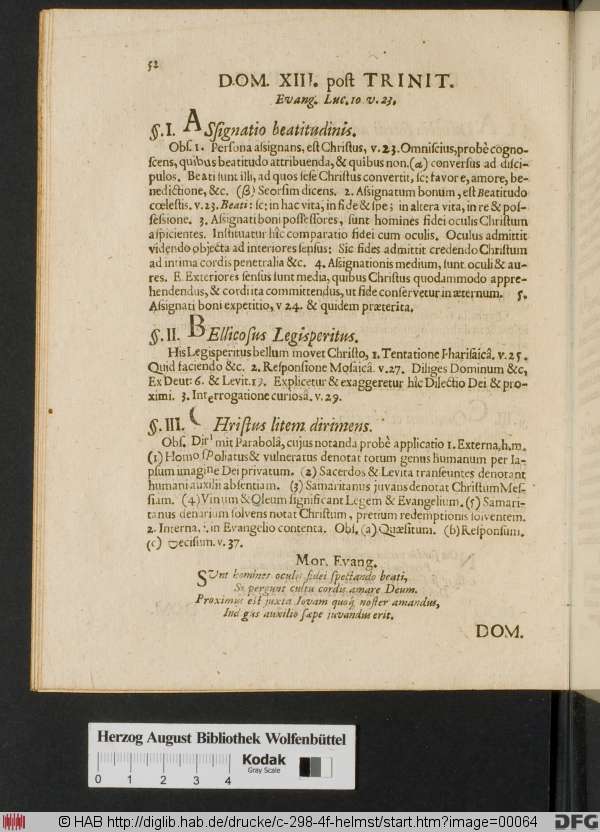 52
DOM. XIII. post TRINIT.
Evang. Luc. 10 v. 23.
§. I. ASsignatio beatitudinis.
Obs. 1. Persona assignans, est Christus, v. 23. Omniscius, probè cogno-
scens, quibus beatitudo attribuenda, & quibus non. (α) conversus ad disci-
pulos. Beati sunt illi, ad quos sese Christus convertit, sc; favore, amore, be-
nedictione, &c. (β) Seorsim dicens. 2. Assignatum bonum, est Beatitudo
cœlestis. v. 23. Beati: sc; in hac vita, in fide & spe; in altera vita, in re & pos-
sessione. 3. Assignati boni possessores, sunt homines fidei oculis Christum
aspicientes. Instituatur hîc comparatio fidei cum oculis. Oculus admittit
videndo objecta ad interiores sensus: Sic fides admittit credendo Christum
ad intima cordis penetralia &c. 4. Assignationis medium, sunt oculi & au-
res. E. Exteriores sensus sunt media, quibus Christus quodammodo appre-
hendendus, & cordi ita committendus, ut fide conservetur in æternum. 5.
Assignati boni expetitio, v 24. & quidem præterita.
§. II. BEllicosus Legisperitus.
His Legisperitus bellum movet Christo, 1. Tentatione Pharisaicâ. v. 25.
Quid faciendo &c. 2. Responsione Mosaicâ. v. 27. Diliges Dominum &c,
Ex Deut: 6. & Levit. 19. Explicetur & exaggeretur hîc Dilectio Dei & pro-
ximi. 3. Interrogatione curiosâ. v. 29.
§. III. CHristus litem dirimens.
Obs. Dirimit Parabolâ, cujus notanda probè applicatio 1. Externa, h. m.
(1) Homo spoliatus & vulneratus denotat totum genus humanum per la-
psum imagine Dei privatum. (2) Sacerdos & Levita transeuntes denotant
humani auxilii absentiam. (3) Samaritanus juvans denotat Christum Mes-
siam. (4) Vinum & Oleum significant Legem & Evangelium. (5) Samari-
tanus denarium solvens notat Christum, pretium redemptionis solventem.
2. Interna, in Evangelio contenta. Obs. (a) Quæsitum. (b) Responsum.
(c) Decisum. v. 37.
Mor. Evang.
SUnt homines oculis fidei spectando beati,
Si pergunt cultu cordis amare Deum.
Proximus est juxta Jovam quoq; noster amandus,
Indigus auxilio sæpe juvandus erit.
DOM.
Herzog August Bibliothek Wolfenbüttel
0 1 2 3 4
Kodak
Gray Scale
© HAB http://diglib.hab.de/drucke/c-298-4f-helmst/start.htm?image=00064
DFG